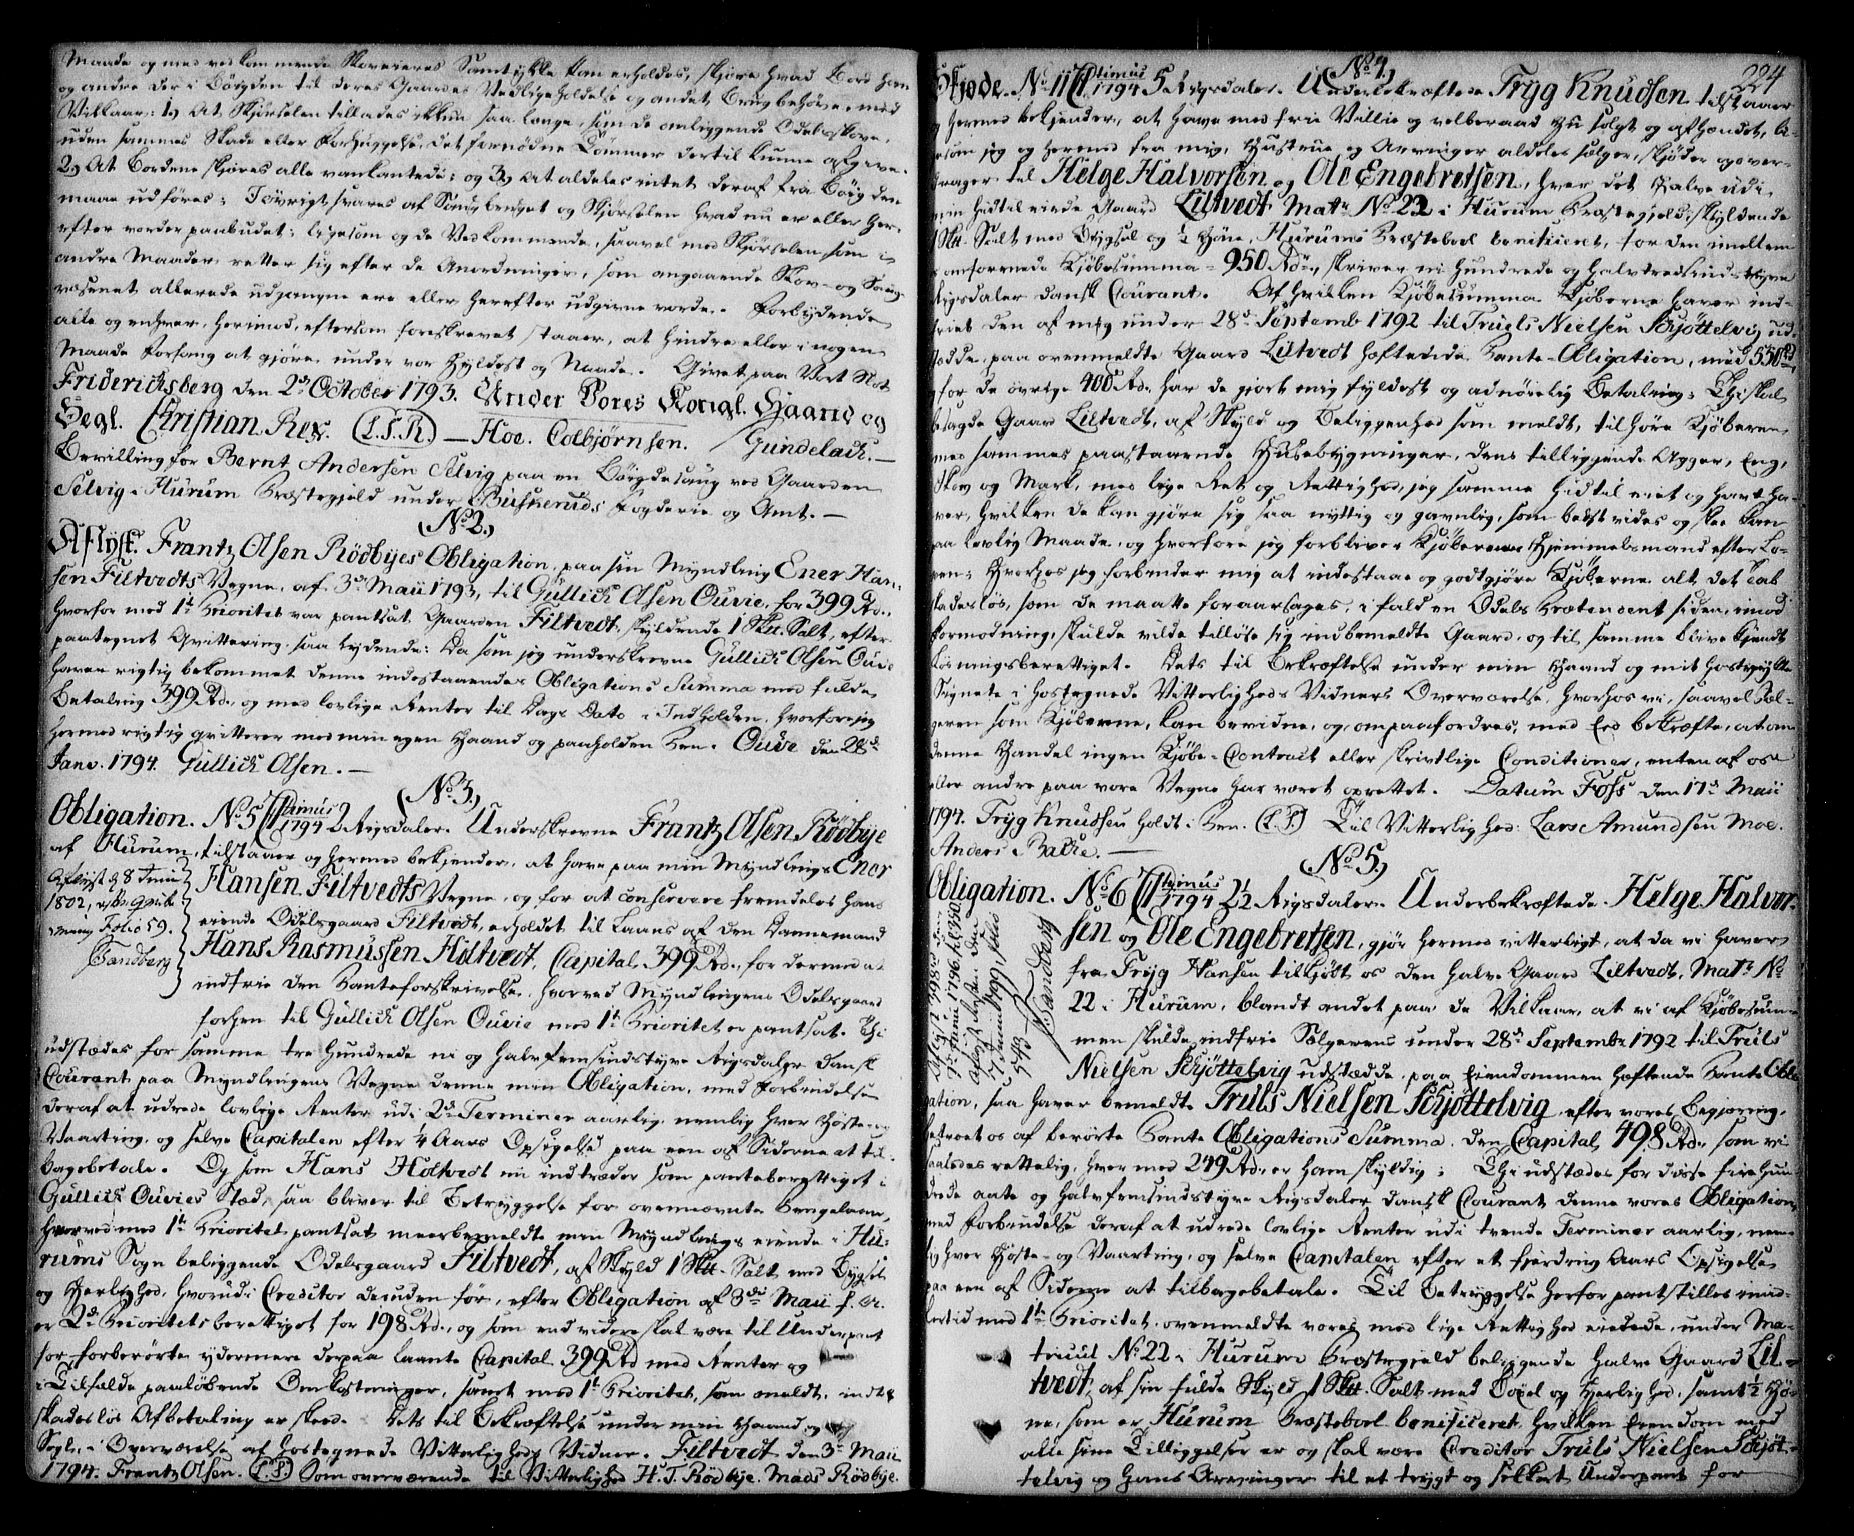 Maade og med vedkommende Skoveieres Samtykke kan erholdes, skjære hvad Bord han
og andre der i Bøigden til deres Gaardes Vedligeholdelse og andet Brug behøve, med
Vilkaar: 1) At Skjørselen tillades ikkun saa længe, som de omliggende Odelsskove,
uden sammes Skade eller Forhuggelse, det fornødne Tømmer dertil kunne afgive.
2) At Bordene skjæres alle vankantede; og 3) At aldeles intet deraf fra Bøigden
maae udføres; I øvrigt svares af Saugbruget og Skjørselen hvad nu er eller her-
efter vorder paabudet; ligesom og de Vedkommende, saavel med Skjørselen som i
andre Maader, retter sig efter de Anordninger, som angaaende Skov- og Saug-
væsenet allerede udgangne ere eller herefter udgivne vorde. Forbydende
alle og enhver, herimod, eftersom foreskrevet staaer, at hindre eller i nogen
Maade Forfang at gjøre, under vor Hyldest og Naade. Givet paa Vort Slot
Friderichsberg den 2de October 1793. Under Vores Kongl. Haand og
Segl. Christian Rex. (L.S.R) — Hoe. Colbjørnsen. / Gundelach. —
Bevilling for Bernt Andersen Selvig paa en Bøigdesaug ved Gaarden
Selvig i Hurum Præstegjeld under Buskeruds Fogderie og Amt. —
(No 2.)
Aflyst. Frantz Olsen Rödbyes Obligation, paa sin Myndling Ener Han-
sen Filtvedts Vegne, af 3de Maii 1793, til Gullich Olsen Ouvie, for 399 Rd.,
hvorfor med 1te Prioritet var pantsat Gaarden Filtvedt, skyldende 1 Skt. Salt, efter
paategnet Qvittering saa lydende: Da som jeg underskrevne Gullich Olsen Ouve
haver rigtig bekommet denne indestaaende Obligations Summa med fulde
Betaling 399 Rd., og med lovlige Renter til Dags Dato i Indholden, hvorfore jeg
hermed rigtig qvitterer med min egen Haand og paaholden Pen. Ouve den 28de
Janv. 1794. Gullich Olsen. —
(No 3.)
Obligation. No 5 Ptimus 1794 2 Rigsdaler. Underskrevne Frantz Olsen Rödbye
af Hurum, tilstaaer og hermed bekjender, at have paa min Myndlings Ener
Aflyst d. 8 Junii
1802,
Folio 59.
Sandberg
Hansen Filtvedts Vegne, og for at conservere fremdeles hans
eiende Odelsgaard Filtvedt, erholdet til Laans af den Dannemand
Hans Rasmussen Holtvedt, Capital 399 Rd., for dermed at
indfrie den Panteforskrivelse, hvorved Myndlingens Odelsgaard
forhen til Gullich Olsen Ouvie med 1te Prioritet er pantsat. Thi
udstædes for samme tre Hundrede ni og Halvfemsindstyve Rigsdaler dansk
Courant paa Myndlingens Vegne denne min Obligation, med Forbindelse
deraf at udrede lovlige Renter udi 2de Terminer aarlig, nemlig hver Høste og
Vaarting, og selve Capitalen efter 1/4 Aars Opsigelse paa een af Siderne at til-
bagebetale. Og som Hans Holtvedt nu indtræder som panteberettiget i
Gullich Ouvies Sted, saa bliver til Betryggelse for ovennævnte Pengelaan,
hvorved med 1te Prioritet pantsat meerbemeldte min Myndlings eiende i Hu-
rums Sogn beliggende Odelsgaard Filtvedt, af Skyld 1 Skt. Salt med Bygsel
og Herlighed, hvorudi Creditor desuden før, efter Obligation af 3de Maii f. A.
er 2de Prioritets berettiget for 198 Rd., og som end videre skal være til Underpant
for forberørte ydermere derpaa laante Capital 399 Rd med Renter og
i Tilfælde paaløbende Omkostninger, samt med 1te Prioritet, som meldt, indtil
skadesløs Afbetaling er skeed. Dets til Bekræftelse under min Haand og
Segl, i Overværelse af hostegnede Vitterligheds Vidner. Filtvedt den 3de Maii
1794. Frantz Olsen. (L.S.) Som overværende til Vitterlighed H. T. Rödbye. Mads Rödbye.
224
(No 4.)
Skjøde. No 11 Ptimus 1794 5 Rigsdaler. Underbekræftede Tryg Knudsen tilstaaer
og hermed bekjender, at have med frie Villie og velberaad Hu solgt og afhændet, li-
gesom jeg og herved fra mig, Hustrue og Arvinger aldeles sælger, skjøder og over-
drager til Helge Halvorsen og Ole Engebretsen, hver det halve udi
min hidtil eiede Gaard Liltvedt Matr. No 22 i Hurum Præstegjeld, skyldende
1 Skt. Salt med Bygsel og 1/2 Høne, Hurums Præstebord benificeret, for den imellem
os omforenede Kjøbesumma 950 Rd., skriver ni Hundrede og Halvtredsindstyve
Rigsdaler dansk Courant. Af hvilken Kjøbesumma Kjøberne haver ind-
friet den af mig under 28de Septemb 1792 til Truels Nielsen Schjöttelvig ud-
stædde, paa ovenmeldte Gaard Liltvedt heftende Pante-Obligation, med 550 Rd,
for de øvrige 400 Rd. har de gjort mig fyldest og adnøielig Betaling; Thi skal
besagde Gaard Liltvedt, af Skyld og Beliggenhed som meldt, tilhøre Kjøberne,
med sammes paastaaende Husebygninger, dens tilliggende Agger, Eng,
Skov og Mark, med lige Ret og Rettighed, jeg samme hidtil eiet og havt ha-
ver, hvilken de kan gjøre sig saa nyttig og gavnlig, som bedst vides og skee kan
paa lovlig Maade, og hvorfore jeg forbliver Kjøberenes Hjemmelsmand efter Lo-
ven; Hvorhos jeg forbinder mig at indestaae og godtgjøre Kjøberne alt det Tab
skadesløs, som de maatte foraarsages, i fald en Odels Prætendent siden, imod
Formodning, skulde vilde tilløse sig indbemeldte Gaard, og til samme blive kjendt
løsningsberettiget. Dets til Bekræftelse under min Haand og mit hostrykte
Signete i hostegnede Vitterligheds Vidners Overværelse, hvorhos vi, saavel Sæl-
geren som Kjøberne, kan bevidne, og, om paafordres, med Eed bekræfte, at om
denne Handel ingen Kjøbe-Contract eller skrivtlige Conditioner, enten af os
eller andre paa vore Vegne har været oprettet. Datum Foss den 17de Maii
1794. Tryg Knudsen holdt i Pen. (L.S.) Til Vitterlighed: Lars Amundsen Moe.
Anders Bache. —
(No 5.)
Obligation. No 6 Ptimus 1794 2 1/2 Rigsdaler. Underbekræftede Helge Halvor-
sen og Ole Engebretsen, gjør hermed vitterligt, at da vi haver
fra Tryg Hansen tilkjøbt os den halve Gaard Liltvedt, Matr. No
22 i Hurum, blandt andet paa de Vilkaar, at vi af Kjøbesum-
men skulde indfrie Sælgerens under 28de Septembr 1792 til Truls
Nielsen Schjöttelvig udstædde, paa Eiendommen hæftende Pante Obli-
Sandberg
gation, saa haver bemeldte Trules Nielsen Schjöttelvig, efter vores Begjæring,
betroet os af berørte Pante Obligations Summa, den Capital 498 Rd., som vi
saaledes rettelig, hver med 249 Rd., er ham skyldig; Thi udstædes for disse fire Hun-
drede aatte og Halvfemsindstyve Rigsdaler dansk Courant denne vores Obligation,
med Forbindelse deraf at udrede lovlige Renter udi tvende Terminer aarlig, nem-
lig hver Høste- og Vaarting, og selve Capitalen efter et fjerding Aars Opsigelse
paa een af Siderne at tilbagebetale. Til Betryggelse herfor pantstilles imid-
lertid med 1te Prioritet ovenmeldte vores med lige Rettighed eiede, under Ma-
tricul No 22 i Hurum Præstegjeld beliggende halve Gaard Lil-
tvedt, af sin fulde Skyld 1 Skt. Salt med Bøxel og Herlighed, samt 1/2 Hø-
ne, som er Hurum Præstebord benificeret, hvilken Eiendom med
alle sine Tilliggelser er og skal være Creditor Truls Nielsen Schjöt-
telvig og hans Arvinger til et trygt og sikkert Underpant for